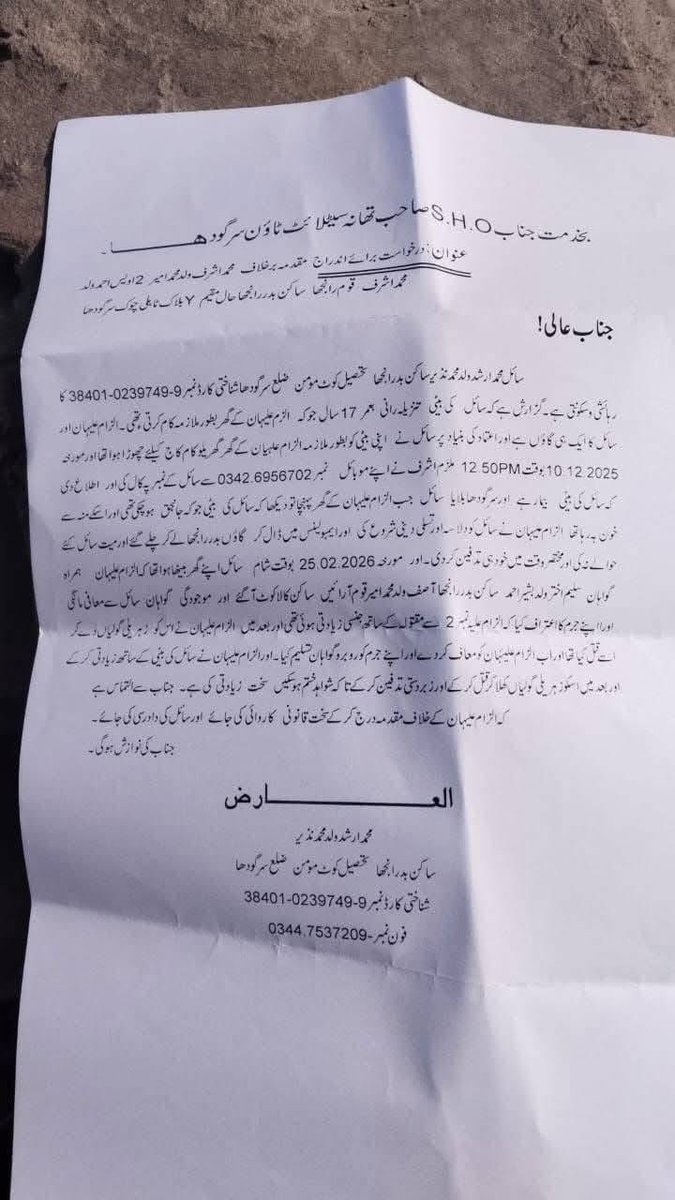 بخدمت جناب S.H.O صاحب تھانہ سیٹلائٹ ٹاؤن سرگودھا۔
عنوان: درخواست برائے اندراج مقدمہ برخلاف محمد اشرف ولد محمد امیر 2 اویس احمد ولد
محمد اشرف قوم رانجھا ساکن بدر رانجھا حال مقیم Y بلاک ٹاہلی چوک سرگودھا
جناب عالی!
سائل محمد ارشد ولد محمد نذیر ساکن بدر رانجھا تحصیل کوٹ مومن ضلع سرگودھا شناختی کارڈ نمبر 9-0239749-38401 کا
رہائشی و سکونتی ہے۔ گزارش ہے کہ سائل کی بیٹی تنزیلہ رانی بعمر 17 سال جو کہ الزم علیہان کے گھر بطور ملازمہ کام کرتی تھی۔ الزام علیہان اور
سائل کا ایک ہی گاؤں ہے اور اعتماد کی بنیاد پر سائل نے اپنی بیٹی کو بطور ملازمہ الزام علیہان کے گھر گھریلو کام کاج کیلئے چھوڑا ہوا تھا اور مورخہ
10.12.2025 بوقت 12.50PM ملزم اشرف نے اپنے موبائل نمبر 0342.6956702 سے سائل کے نمبر پہ کال کی اور اطلاع دی
کہ سائل کی بیٹی بیمار ہے اور سرگودھا بلایا سائل جب الزام علیہان کے گھر پہنچا تو دیکھا کہ سائل کی بیٹی جو کہ جانبحق ہو چکی تھی اور اسکے منہ سے
خون بہہ رہا تھا الزام علیہان نے سائل کو دلاسہ اور تسلی دینی شروع کی اور ایمبولینس میں ڈال کر گاؤں بدر رانجھا لے کر چلے گئے اور میت سائل کے
حوالے نہ کی اور مختصر وقت میں خود ہی تدفین کر دی۔ اور مورخہ 25.02.2026 بوقت شام سائل اپنے گھر بیٹھا ہوا تھا کہ الزام علیہان ہمراہ
گواہان سلیم اختر ولد بشیر احمد ساکن بدر رانجھا آصف ولد محمد امیر قوم آرائیں ساکن کالا کوٹ آگئے اور موجودگی گواہان سائل سے معافی مانگی
اور اپنے جرم کا اعتراف کیا کہ الزام علیہ نمبر 2 سے مقتولہ کے ساتھ جنسی زیادتی ہوئی تھی اور بعد میں الزام علیہان نے اس کو زہریلی گولیاں دے کر
اسے قتل کیا تھا اور اب الزام علیہان کو معاف کر دے اور اپنے جرم کو روبرو گواہان تسلیم کیا۔ اور الزام علیہان نے سائل کی بیٹی کے ساتھ زیادتی کر کے
اور بعد میں اسکو زہریلی گولیاں کھلا کر قتل کر کے اور زبردستی تدفین کر کے تاکہ شواہد ختم ہو سکیں سخت زیادتی کی ہے۔ جناب سے التماس ہے
کہ الزام علیہان کے خلاف مقدمہ درج کر کے سخت قانونی کاروائی کی جائے اور سائل کی دادرسی کی جائے۔
جناب کی نوازش ہوگی۔
العارض
محمد ارشد ولد محمد نذیر
ساکن بدر رانجھا تحصیل کوٹ مومن ضلع سرگودھا
شناختی کارڈ نمبر 9-0239749-38401
فون نمبر-0344.7537209